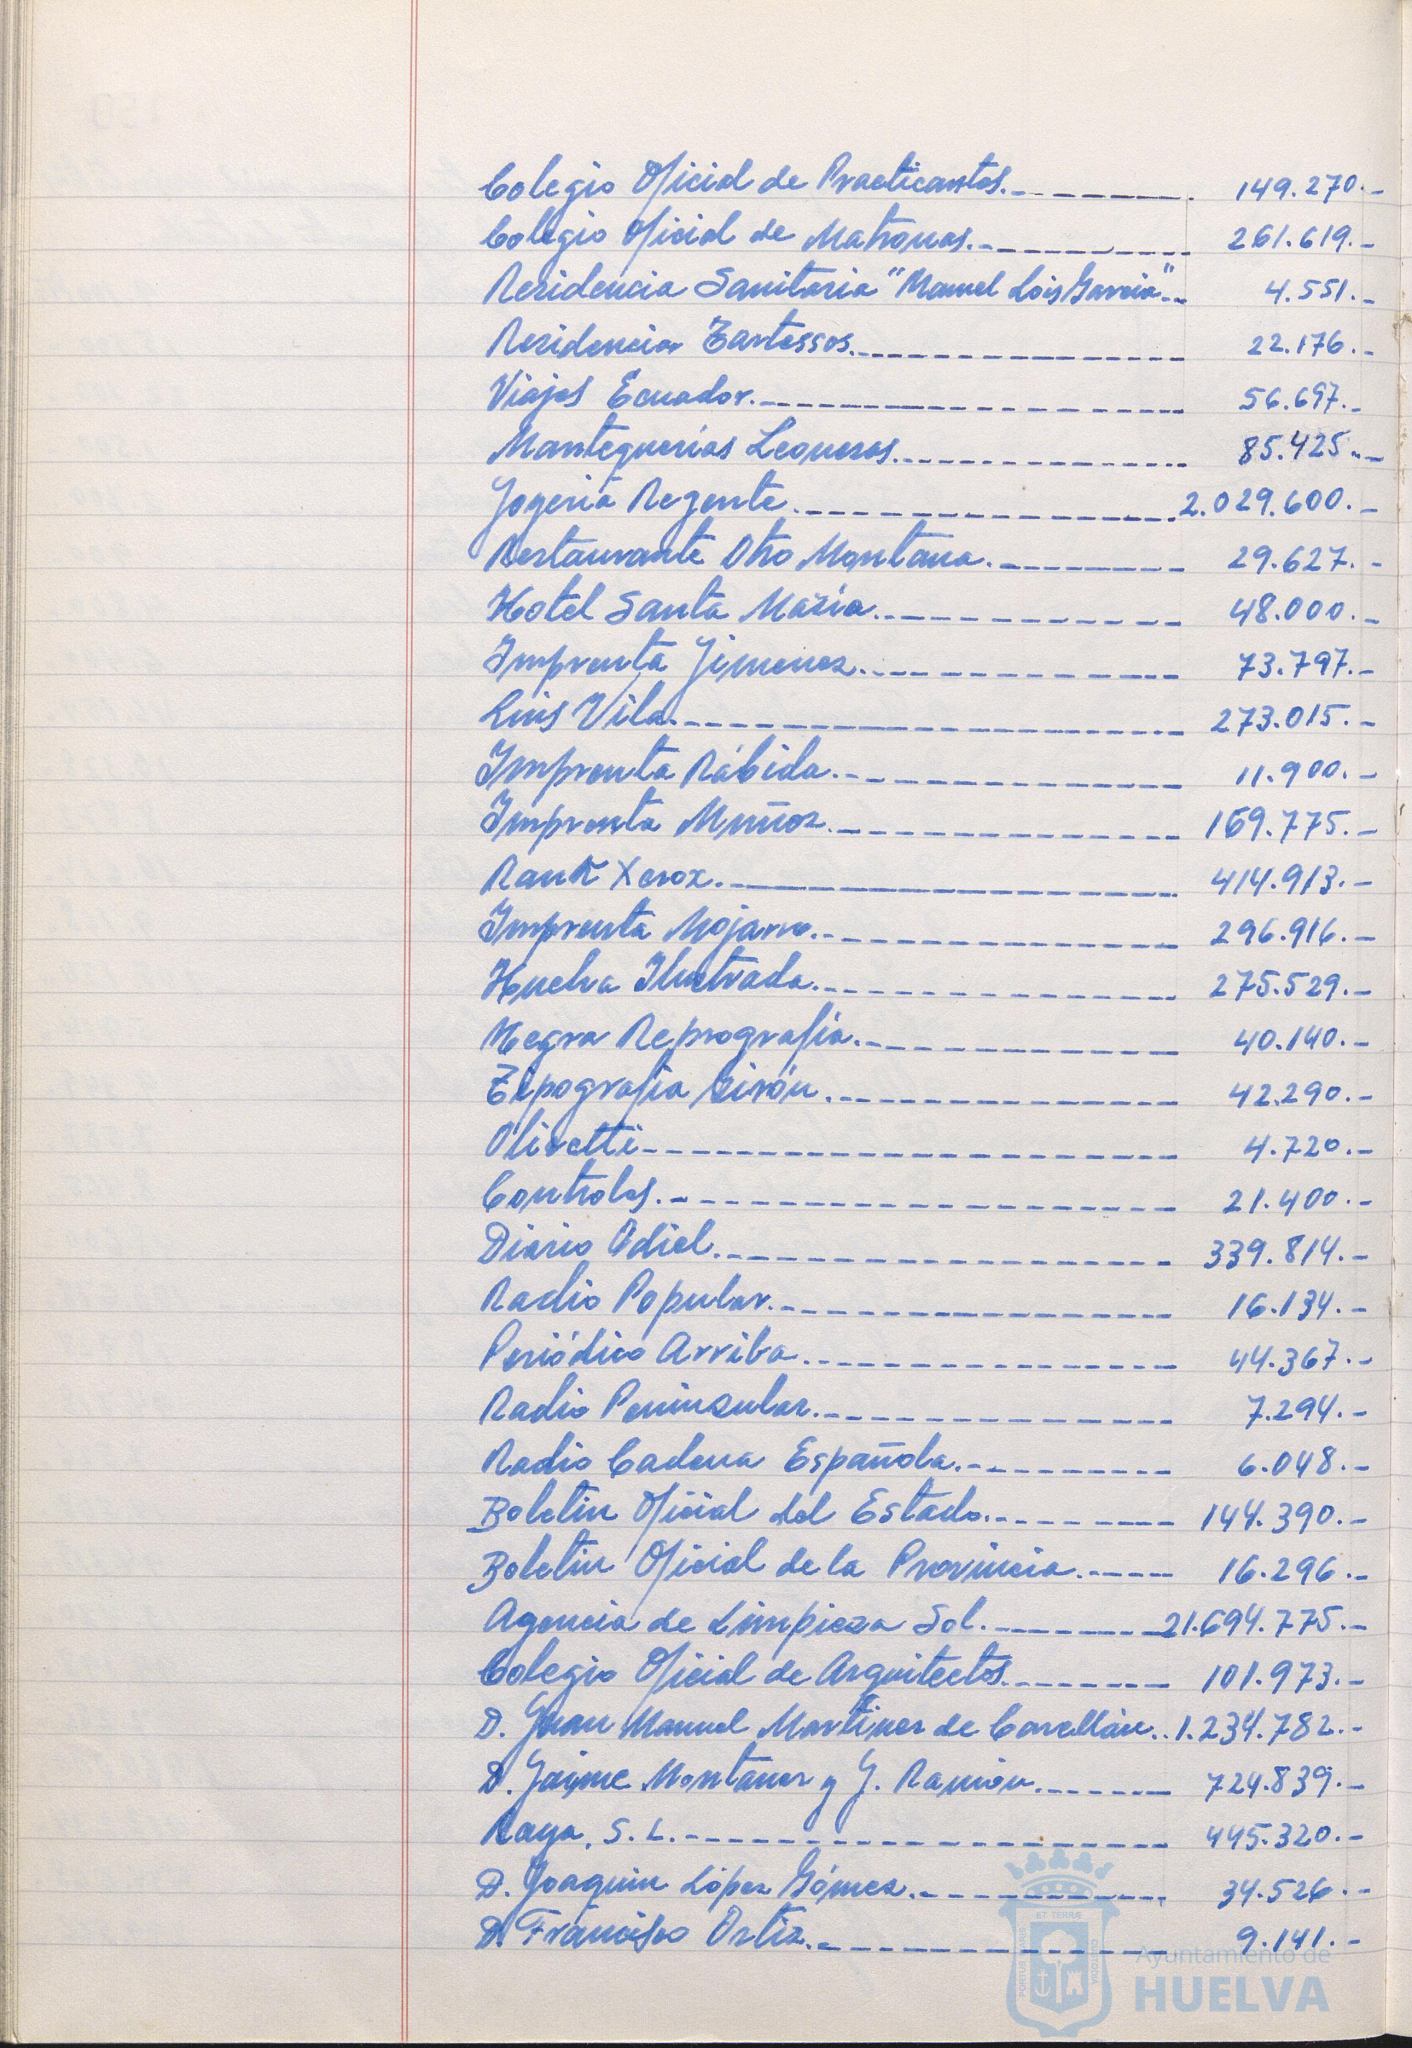 Colegio Oficial de Practicantes.--------. 149.270.-
Colegio Oficial de Matronas.--------- 261.619.-
Residencia Sanitaria "Manuel Lois García"-- 4.551.-
Residencia Tartessos.-------------- 22.176.-
Viajes Ecuador.----------------- 56.697.-
Mantequerías Leonesas.------------ 85.425.--
Joyería Regente.---------------- 2.029.600.-
Restaurante Otto Montana.-------- 29.627.-
Hotel Santa María.------------- 48.000.-
Imprenta Jimenez.------------- 73.797.-
Luis Vila.-------------------- 273.015.-
Imprenta Rábida.-------------- 11.900.-
Imprenta Muñoz.-------------- 169.775.-
Rank Xerox.----------------- 414.913.-
Imprenta Mojarro.------------- 296.916.-
Huelva Ilustrada.------------- 275.529.-
Negra Reprografía.----------- 40.140.-
Tipografía Girón.------------- 42.290.-
Olivetti--------------------- 4.720.-
Controles.------------------- 21.400.-
Diario Odiel.----------------- 339.814.-
Radio Popular.--------------- 16.134.-
Periódico Arriba.------------- 44.367.-
Radio Peninsular.------------- 7.294.-
Radio Cadena Española.-------- 6.048.-
Boletin Oficial del Estado.------- 144.390.-
Boletin Oficial de la Provincia.----- 16.296.-
Agencia de Limpieza Sol.------- 21.694.775.-
Colegio Oficial de Arquitectos.------ 101.973.-
D. Juan Manuel Martinez de Carellán.. 1.234.782.-
D. Jaime Montaner y J. Ramón.------ 724.839.-
Raya, S. L.------------------- 445.320.-
D. Joaquin López Gómez.--------- 34.526.-
D. Francisco Ortiz.------------- 9.141.-
PORTUS MARIS ET TERRÆ CUSTODIA
Ayuntamiento de
HUELVA